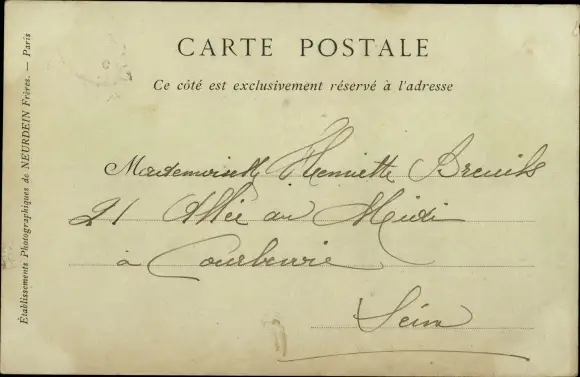 CARTE POSTALE
Ce côté est exclusivement réservé à l'adresse
Mademoiselle Henriette Breuils
21 Allée au Midi
à Courbevoie
Seine
Établissements Photographiques de NEURDEIN Frères. — Paris